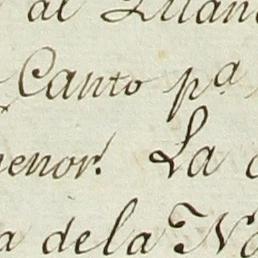 al
Canto pª
enor. La
a de la No